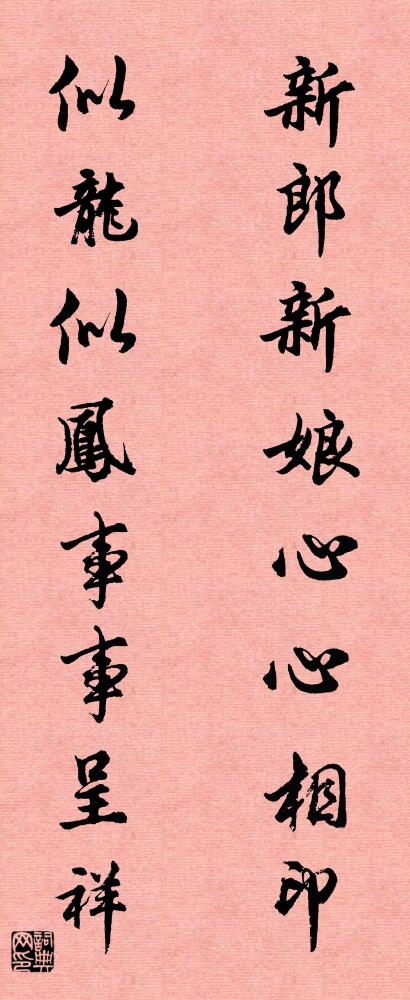 新郎新娘心心相印
似龍似鳳事事呈祥
詞典网印